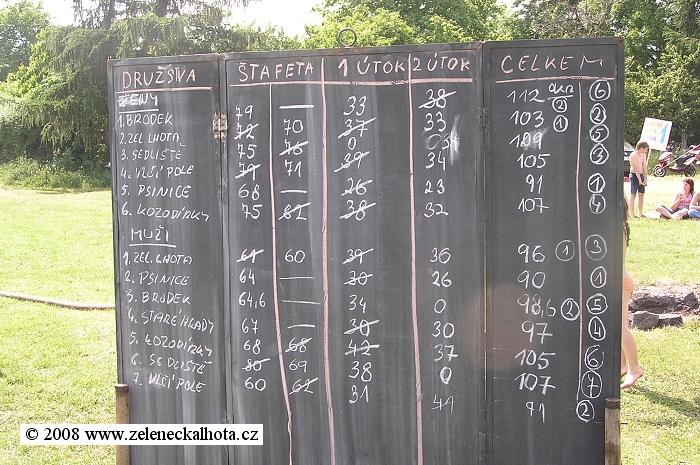 DRUŽSTVA ŠTAFETA 1 ÚTOK 2 ÚTOK CELKEM
ŽENY
1. BRODEK 79 — 33 38 112 6
2. ZEL LHOTA 72 70 37 33 103 2 2
3. SEDLIŠTĚ 75 76 0 34 109 1 5
4. VLČÍ POLE 71 71 39 34 105 3
5. PSINICE 68 — 26 23 91 1
6. KOZODÍRKY 75 82 38 32 107 4
MUŽI
1. ZEL. LHOTA 61 60 39 36 96 1 3
2. PSINICE 64 — 30 26 90 1
3. BRODEK 64,6 — 34 0 98,6 2 5
4. STARÉ HRADY 67 — 30 30 97 4
5. KOZODÍRKY 68 68 42 37 105 6
6. SEDLIŠTĚ 80 69 38 0 107 7
7. VLČÍ POLE 60 62 31 41 91 2
© 2008 www.zeleneckalhota.cz